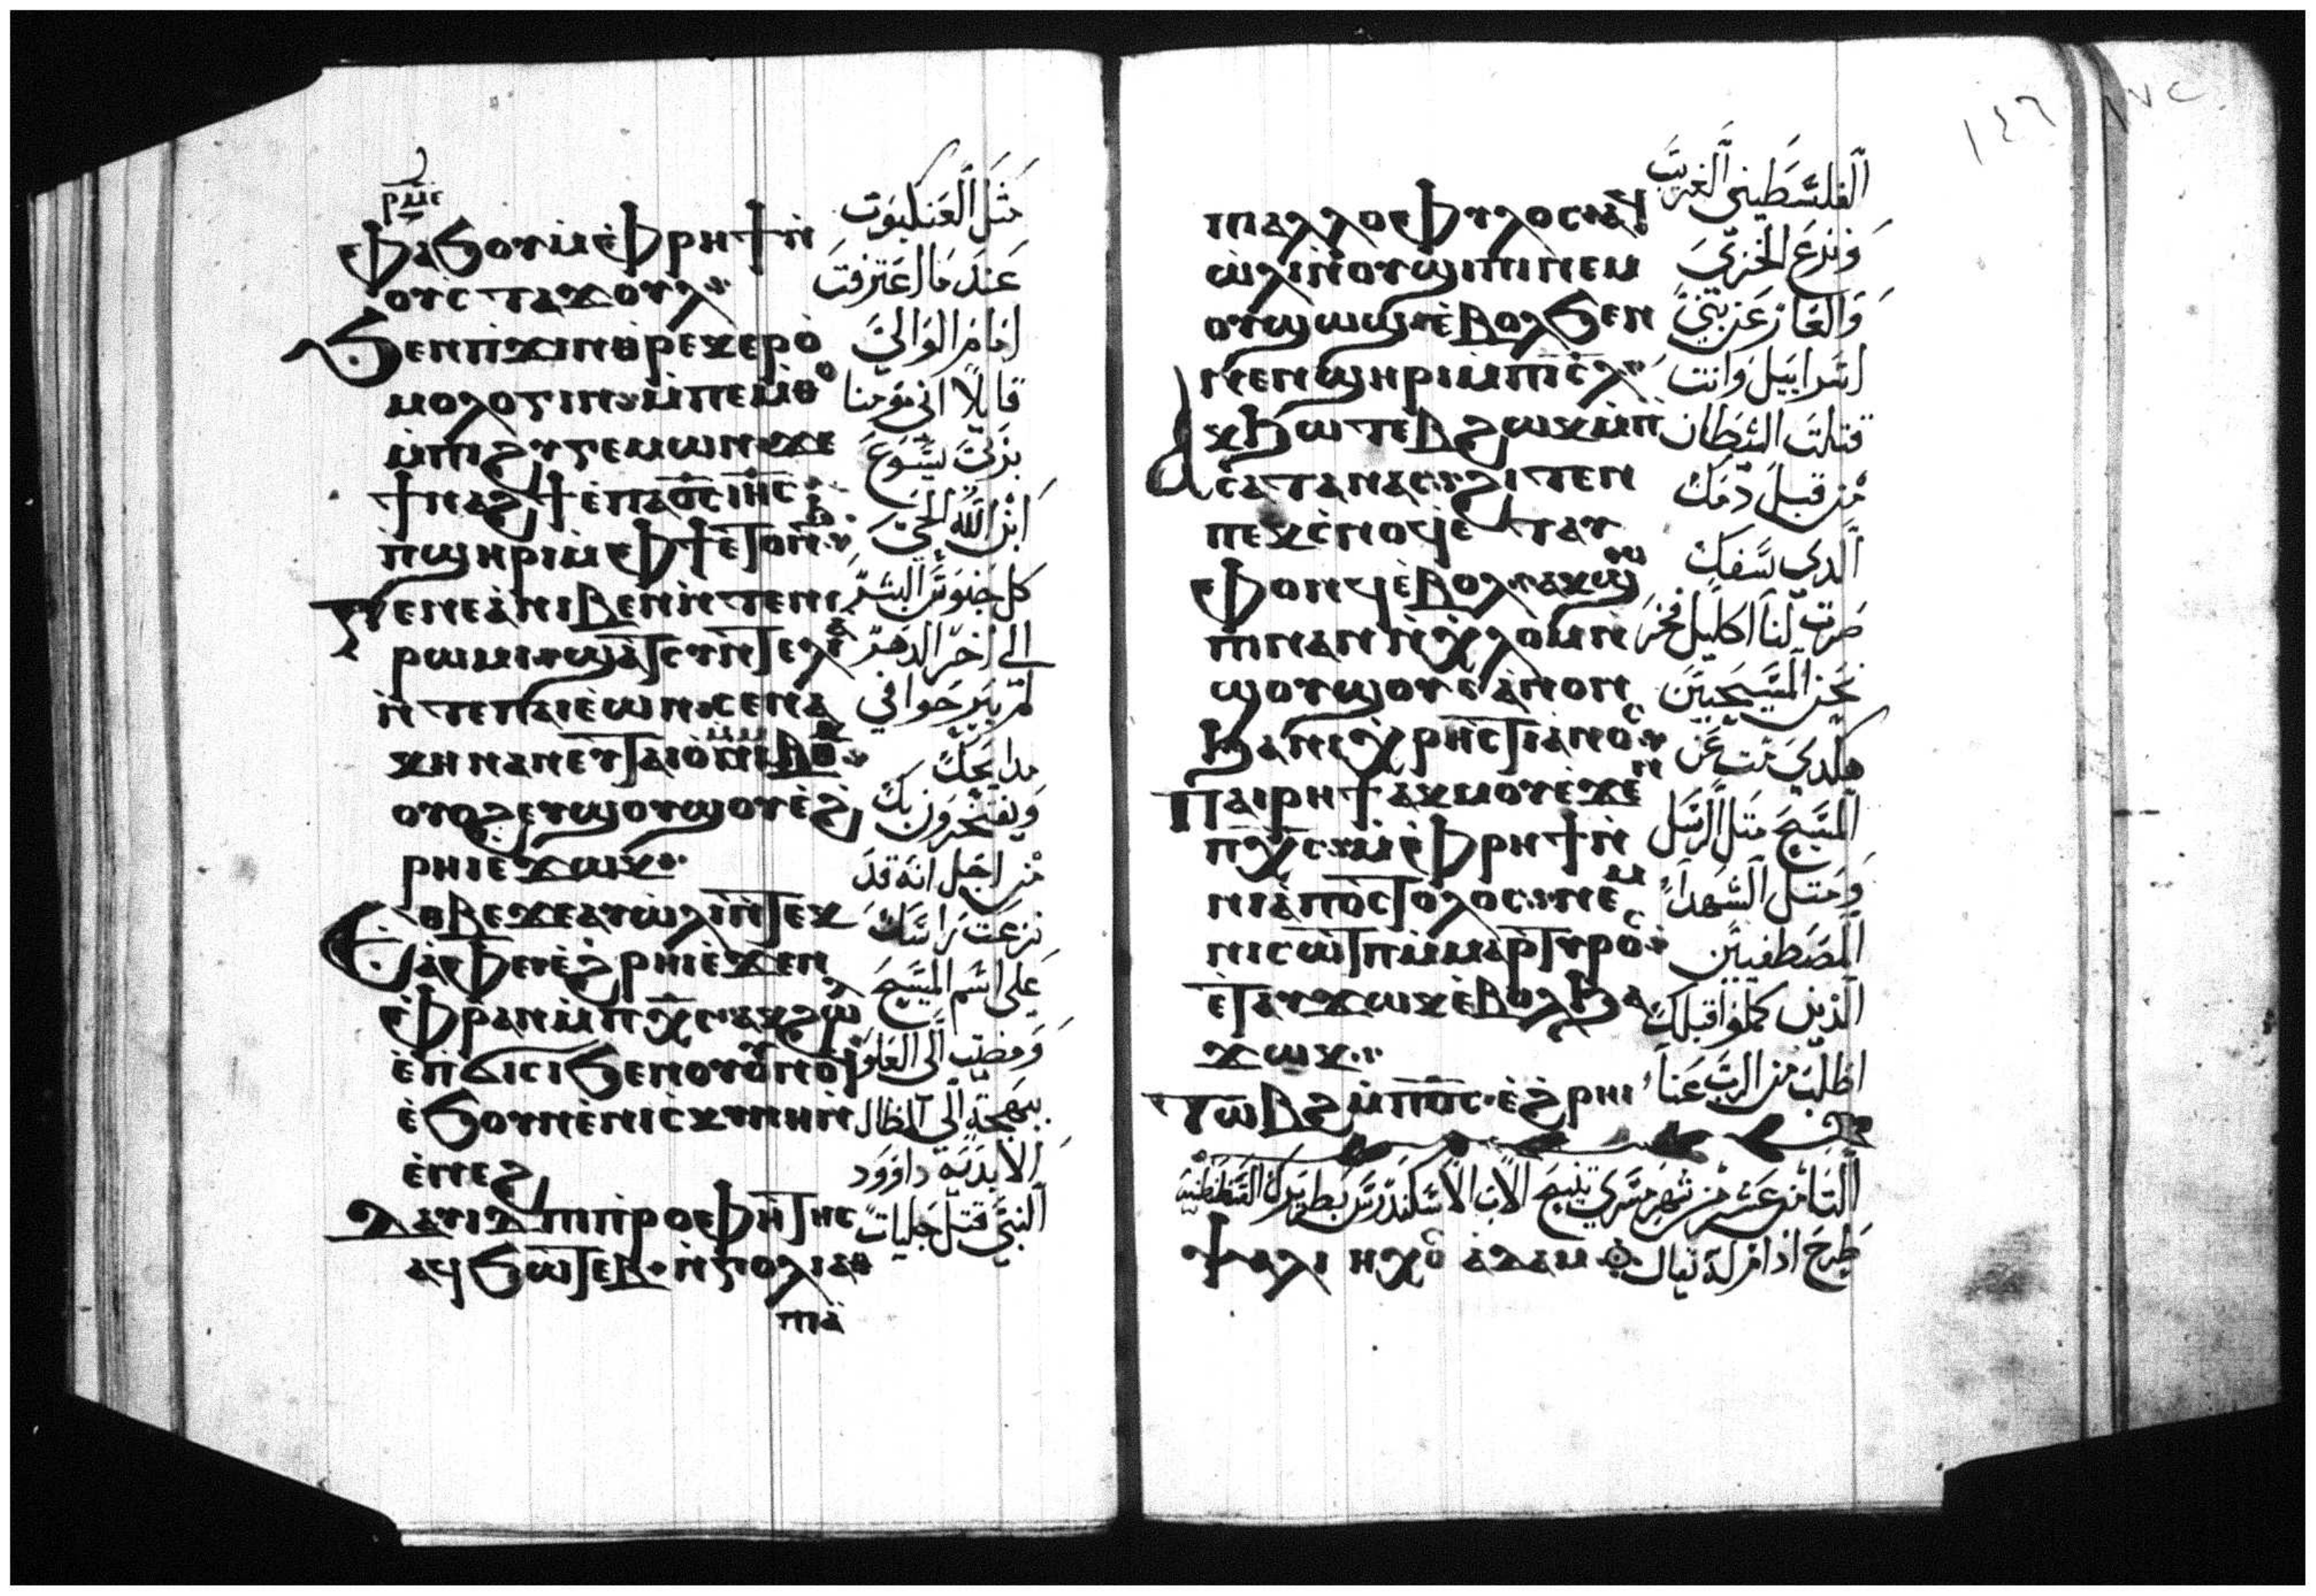 ⲣⲙⲉ
ⲉⲫⲁϧⲟⲩⲛ ⲙⲉⲫⲣⲏϯ ⲛ̀
ⲟⲩⲥⲧⲁϫⲟⲩⲗ
ϧⲉⲛⲡϫⲓⲛⲑⲣⲉⲕⲉⲣⲟ̀
ⲙⲟⲗⲟⲅⲓⲛ ⲙ̀ⲡⲉⲙ̀ⲑⲟ
ⲙ̀ⲡⲓϩⲩⲅⲉⲙⲱⲛ ϫⲉ
ϯⲛⲁϩϯ ⲉ̀ⲡⲁⲟ̅ⲥ̅ ⲓⲏ̅ⲥ̅
ⲡ̀ϣⲏⲣⲓ ⲙ̀ⲉⲫϯ ⲉⲧⲟⲛϧ
ⲅⲉⲛⲉⲁ̀ ⲛⲓⲃⲉⲛ ⲛ̀ⲧⲉⲛⲓ
ⲣⲱⲙⲓ ϣⲁ̀ⲧⲥⲩⲛⲧⲉⲗⲓⲁ̀
ⲛ̀ⲧⲉⲡⲁⲓⲉⲱⲛ ⲥⲉⲛⲁ
ⲭⲏ ⲛⲁⲛ ⲉⲩⲧⲁⲓⲟ̀ ⲙ̀ⲙⲟⲕ
ⲟⲩⲟϩ ⲉⲩϣⲟⲩϣⲟⲩ ⲉ̀ϩ
ⲣⲏⲓ ⲉϫⲱⲕ
ⲉⲟⲃⲉ ϫⲉ ⲁⲩⲱ̀ⲗⲓ ⲛ̀ⲧⲉⲕ
ⲁ̀ⲫⲉ ⲉ̀ϩⲣⲏⲓ ⲉ̀ϫⲉⲛ
ⲉ̀ⲫⲣⲁⲛ ⲙ̀ⲡⲭ̅ⲥ̅ ⲁⲕϩⲱⲗ
ⲉ̀ⲡϭⲓⲥⲓ ϧⲉⲛ ⲟⲩⲟⲩⲛⲟϥ
ⲉ̀ϧⲟⲩⲛ ⲉ̀ⲛⲓⲥⲕⲩⲛⲏ ⲛ̀
ⲉ̀ⲛⲉϩ
ⲇⲁⲩⲓⲇ ⲡⲓⲡⲣⲟⲉⲫⲏⲧⲏⲥ
ⲁϥϧⲱⲧⲉⲃ ⲛ̀ⲅⲟⲗⲓⲁⲑ
ⲡⲓⲁ̀
مثل العنكبوت
عند ما اعترفت
امام الوالي
قايلا اني مومنا
بربي يسوع
ابن الله الحي
كل جنوس البشر
الي اخر الدهر
لم يبرحوا في
مدايحك
ويفتخرون بك
من اجل انه قد
نزعت راسك
علي اسم المسيح
ومضيت الي العلو
ببهجة الي المظال
الابدية داوود
النبي قتل جليات
١٤٦
ⲡⲓⲁⲗⲗⲟⲉⲫⲩⲗⲟⲥ ⲁϥ
ⲱ̀ⲗⲓ ⲛ̀ⲟⲩϣⲓⲡⲓ ⲛⲉⲙ
ⲟⲩϣⲱϣ ⲉ̀ⲃⲟⲗϧⲉⲛ
ⲛⲉⲛϣⲏⲣⲓ ⲙ̀ⲡⲓⲥ̅ⲗ̅
ⲁⲕϧⲱⲧⲉⲃ ϩⲱⲕ ⲙ̀ⲡ
ⲥⲁⲧⲁⲛⲁⲥ ϩⲓⲧⲉⲛ
ⲡⲉⲕⲥ̀ⲛⲟϥ ⲉ̀ⲧⲁⲩ
ⲉⲫⲟⲛϥ ⲉ̀ⲃⲟⲗ ⲁⲕϣⲱ
ⲡⲓ ⲛⲁⲛ ⲛ̀ⲭⲗⲟⲙ ⲛ̀
ϣⲟⲩϣⲟⲩ ⲁ̀ⲛⲟⲛ
ϧⲁⲛⲓⲭⲣⲏⲥⲧⲓⲁⲛⲟⲥ
ⲡⲁⲓⲣⲏϯ ⲁⲕⲙⲟⲩ ⲉ̀ϫⲉⲛ
ⲡⲭ̅ⲥ̅ ⲙ̀ⲉⲫⲣⲏϯ ⲛ̀
ⲛⲓⲁ̀ⲡⲟⲥⲧⲟⲗⲟⲥ ⲛⲉⲙ
ⲛⲓⲥⲱⲧⲡ ⲙ̀ⲙⲁⲣⲧⲩⲣⲟⲥ
ⲉ̀ⲧⲁⲩϫⲱⲕ ⲉ̀ⲃⲟⲗ ϧⲁ
ϫⲱⲕ
ⲧⲱⲃϩ ⲙ̀ⲡⲟ̅ⲥ̅ ⲉ̀ϩⲣⲏⲓ
الفلسطيني الغريب
ونزع الخزي
والعار عن بني
اسراييل وانت
قتلت الشطان
من قبل دمك
الدي سفك
صرت لنا اكليل فخر
نحن المسيحيين
هكدي مت عن
المسيح متل الرسل
ومتل الشهدا
المصطفيين
الذين كملوا قبلك
اطلب من الرب عنا
التامن عشر من شهر مسري تنيح الاب الاسكندرس بطريرك القسطنطنيه
ⲯⲁⲗⲓ ⲏⲭⲟⲥ ⲁⲇⲁⲙ طرح ادام له يقال